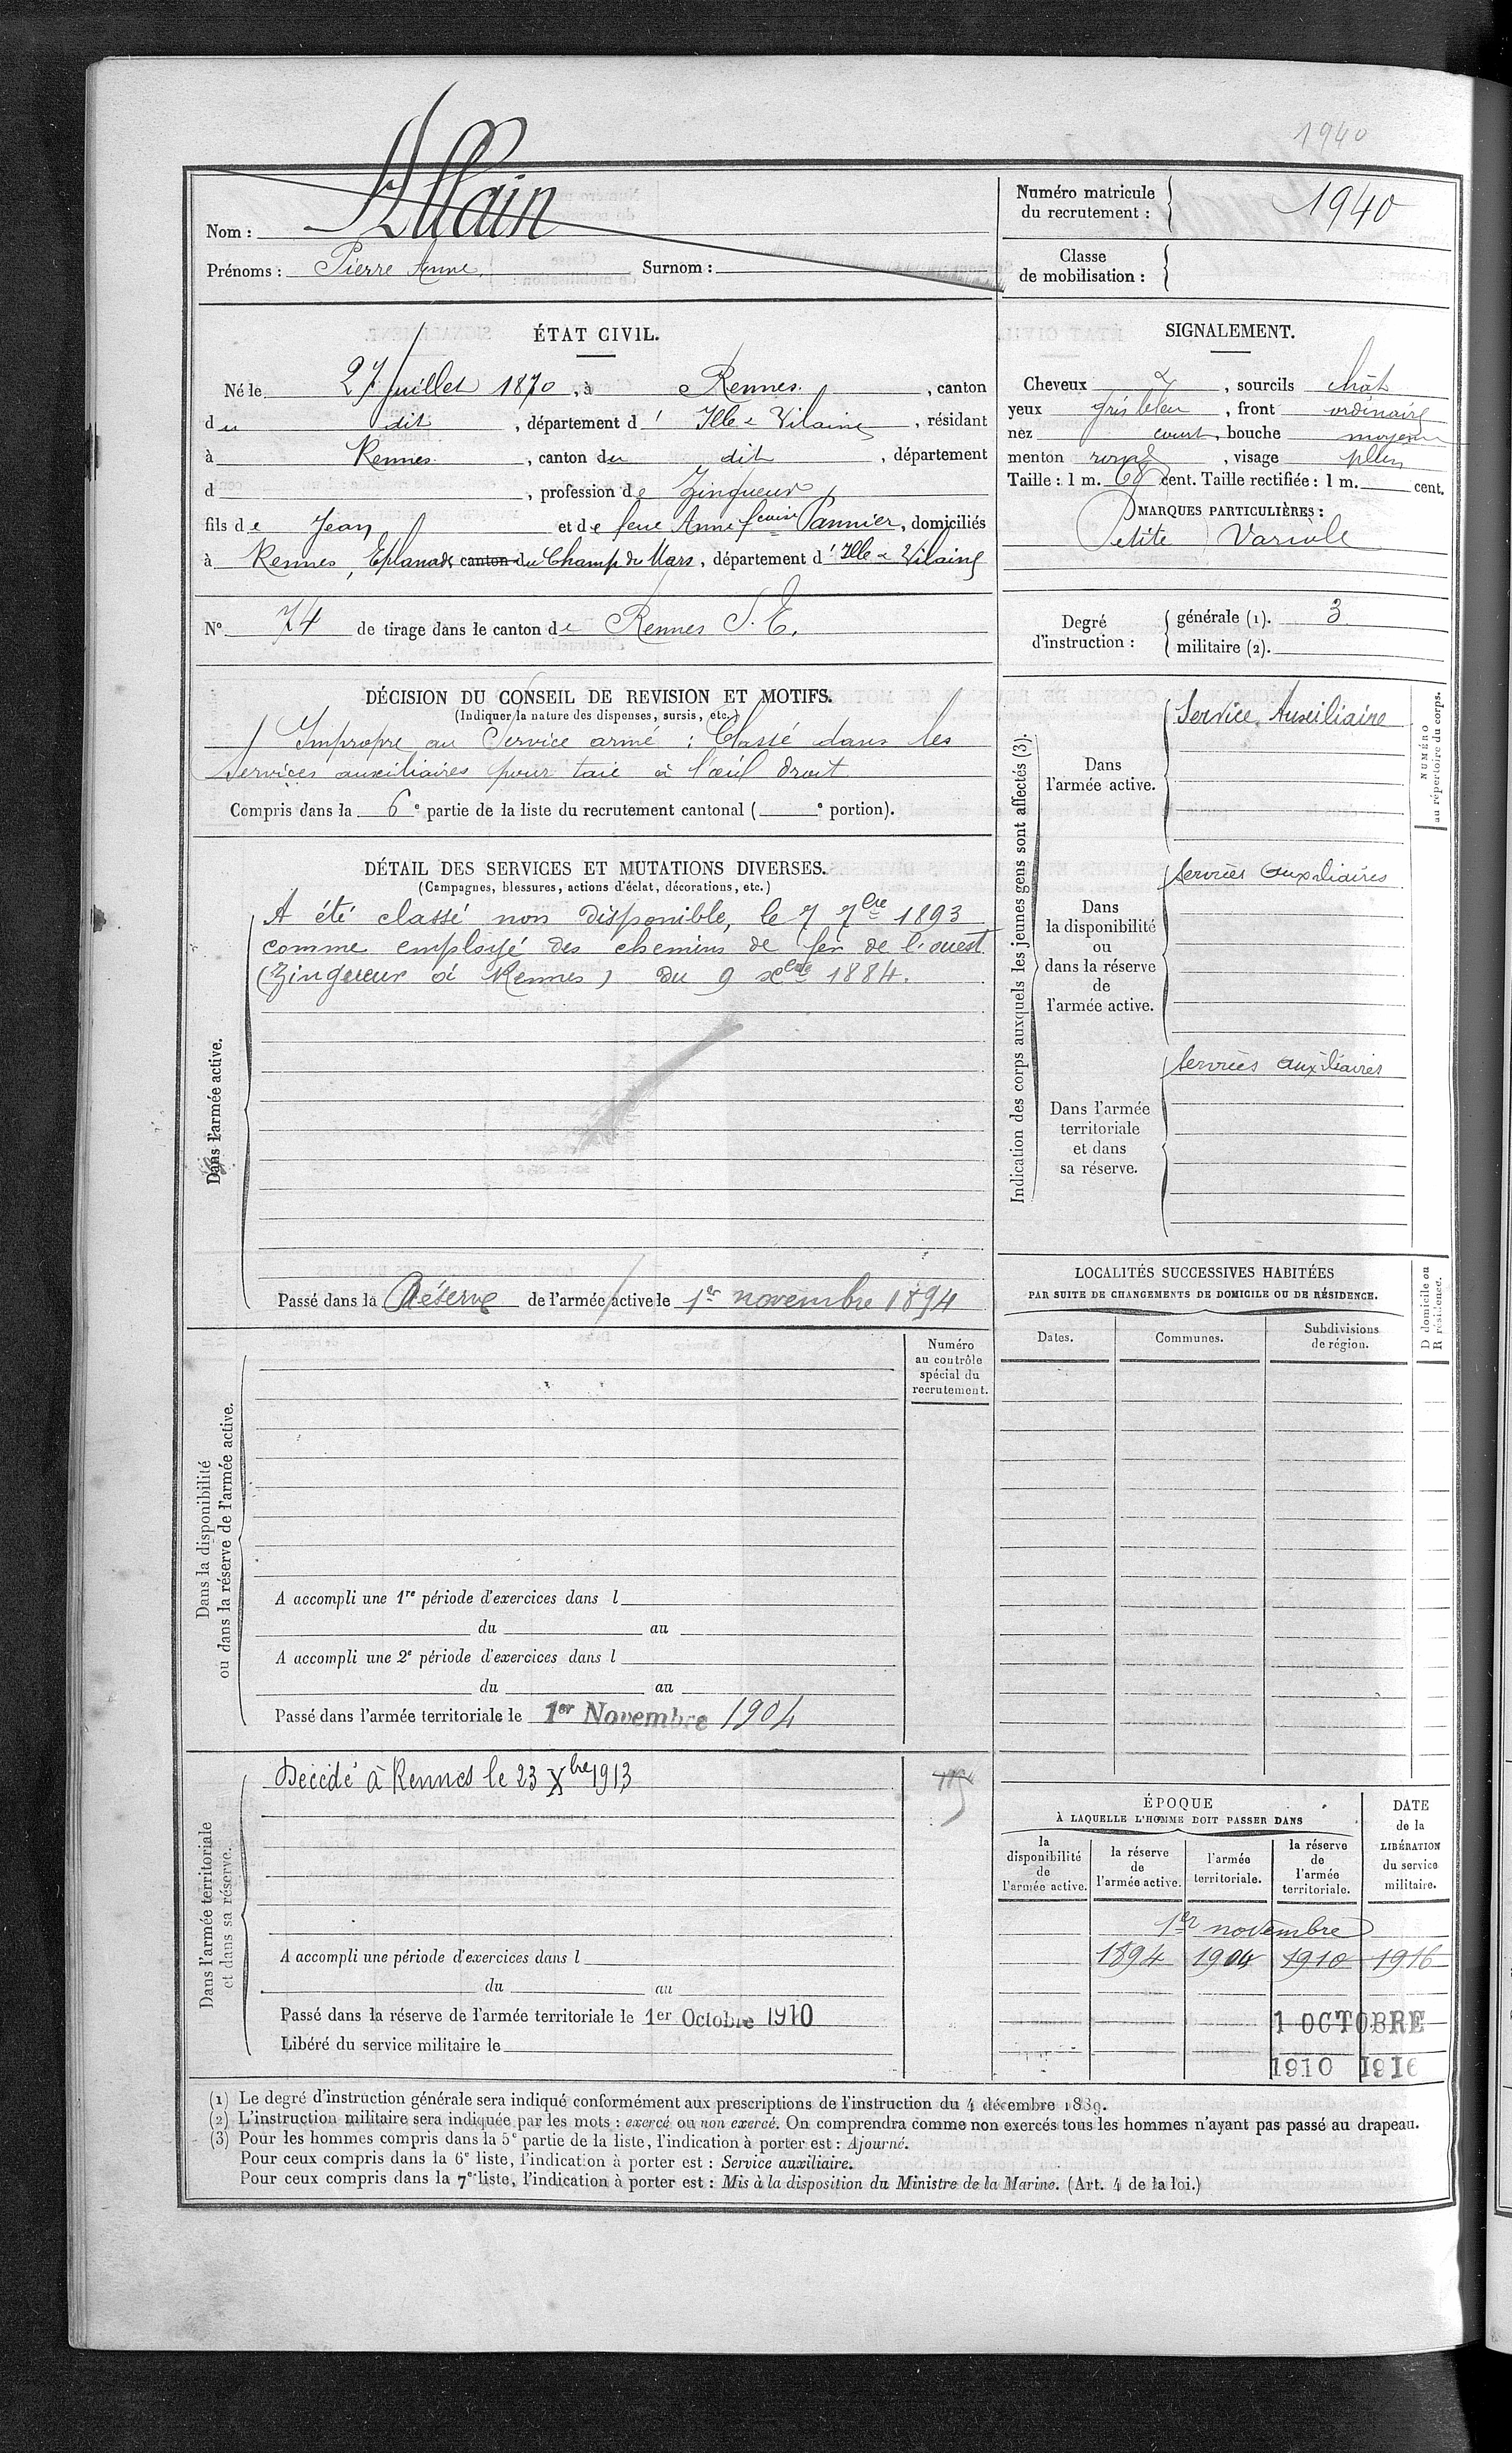 1940
Nom : Allain
Prénoms : Pierre Anne Surnom :
Numéro matricule
du recrutement : 1940
Classe
de mobilisation :
ÉTAT CIVIL.
Né le 27 Juillet 1870, à Rennes, canton
du dit, département d' Ille & Vilaine, résidant
à Rennes, canton du dit, département
d , profession de Zingueur
fils de Jean et de feue Anne fcoise Pannier, domiciliés
à Rennes, Esplanade canton du Champ de Mars, département d' Ille & Vilaine
N° 74 de tirage dans le canton de Rennes S. E.
SIGNALEMENT.
Cheveux & , sourcils chât
yeux gris bleu , front ordinaire
nez court, bouche moyenne
menton rond , visage plein
Taille : 1 m. 68 cent. Taille rectifiée : 1 m. cent.
MARQUES PARTICULIÈRES :
Petite Variole
Degré
d'instruction :
générale (1). 3
militaire (2).
DÉCISION DU CONSEIL DE REVISION ET MOTIFS.
(Indiquer la nature des dispenses, sursis, etc.)
Impropre au Service armé : Classé dans les
Services auxiliaires pour taie à l'œil droit
Compris dans la 6e partie de la liste du recrutement cantonal ( e portion).
DÉTAIL DES SERVICES ET MUTATIONS DIVERSES.
(Campagnes, blessures, actions d'éclat, décorations, etc.)
Dans l'armée active.
A été classé non disponible, le 7 7bre 1893
comme employé des chemins de fer de l'ouest
(Zingueur à Rennes) du 9 xbre 1884.
Passé dans la Réserve de l'armée active le 1er novembre 1894
Indication des corps auxquels les jeunes gens sont affectés (3).
NUMÉRO
au répertoire du corps.
Dans
l'armée active.
Service Auxiliaire
Dans
la disponibilité
ou
dans la réserve
de
l'armée active.
Services auxiliaires
Dans l'armée
territoriale
et dans
sa réserve.
Services auxiliaires
LOCALITÉS SUCCESSIVES HABITÉES
PAR SUITE DE CHANGEMENTS DE DOMICILE OU DE RÉSIDENCE.
D domicile ou
R résidence.
Dates. Communes. Subdivisions
de région.
Dans la disponibilité
ou dans la réserve de l'armée active.
Numéro
au contrôle
spécial du
recrutement.
A accompli une 1re période d'exercices dans l
du au
A accompli une 2e période d'exercices dans l
du au
Passé dans l'armée territoriale le 1er Novembre 1904
Dans l'armée territoriale
et dans sa réserve.
Décédé à Rennes le 23 Xbre 1913
A accompli une période d'exercices dans l
du au
Passé dans la réserve de l'armée territoriale le 1er Octobre 1910
Libéré du service militaire le
ÉPOQUE
À LAQUELLE L'HOMME DOIT PASSER DANS
la
disponibilité
de
l'armée active.
la réserve
de
l'armée active.
l'armée
territoriale.
la réserve
de
l'armée
territoriale.
DATE
de la
LIBÉRATION
du service
militaire.
1er novembre
1894 1904 1910 1916
1 OCTOBRE
1910 1916
(1) Le degré d'instruction générale sera indiqué conformément aux prescriptions de l'instruction du 4 décembre 1889.
(2) L'instruction militaire sera indiquée par les mots : exercé ou non exercé. On comprendra comme non exercés tous les hommes n'ayant pas passé au drapeau.
(3) Pour les hommes compris dans la 5e partie de la liste, l'indication à porter est : Ajourné.
Pour ceux compris dans la 6e liste, l'indication à porter est : Service auxiliaire.
Pour ceux compris dans la 7e liste, l'indication à porter est : Mis à la disposition du Ministre de la Marine. (Art. 4 de la loi.)